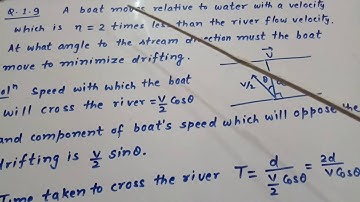 Q.1.9 A boat moves relative to water with a velocity
which is n = 2 times less than the river flow velocity.
At what angle to the stream direction must the boat
move to minimize drifting.
Solⁿ Speed with which the boat
will cross the river = v/2 cosθ
and component of boat's speed which will oppose the
drifting is v/2 sinθ.
Time taken to cross the river T = d/(v/2 cosθ) = 2d/(v cosθ)
v
v/2
θ